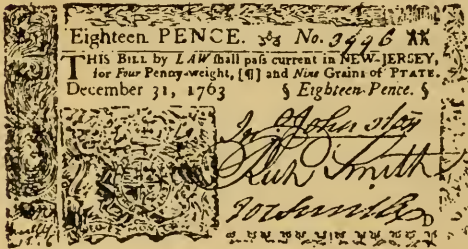 Eighteen PENCE. No. 3996
THIS BILL by LAW ſhall paſs current in NEW-JERSEY,
for Four Penny-weight, [¶] and Nine Grains of PTATE.
December 31, 1763 § Eighteen-Pence. §
Johnston
Smith
Smith